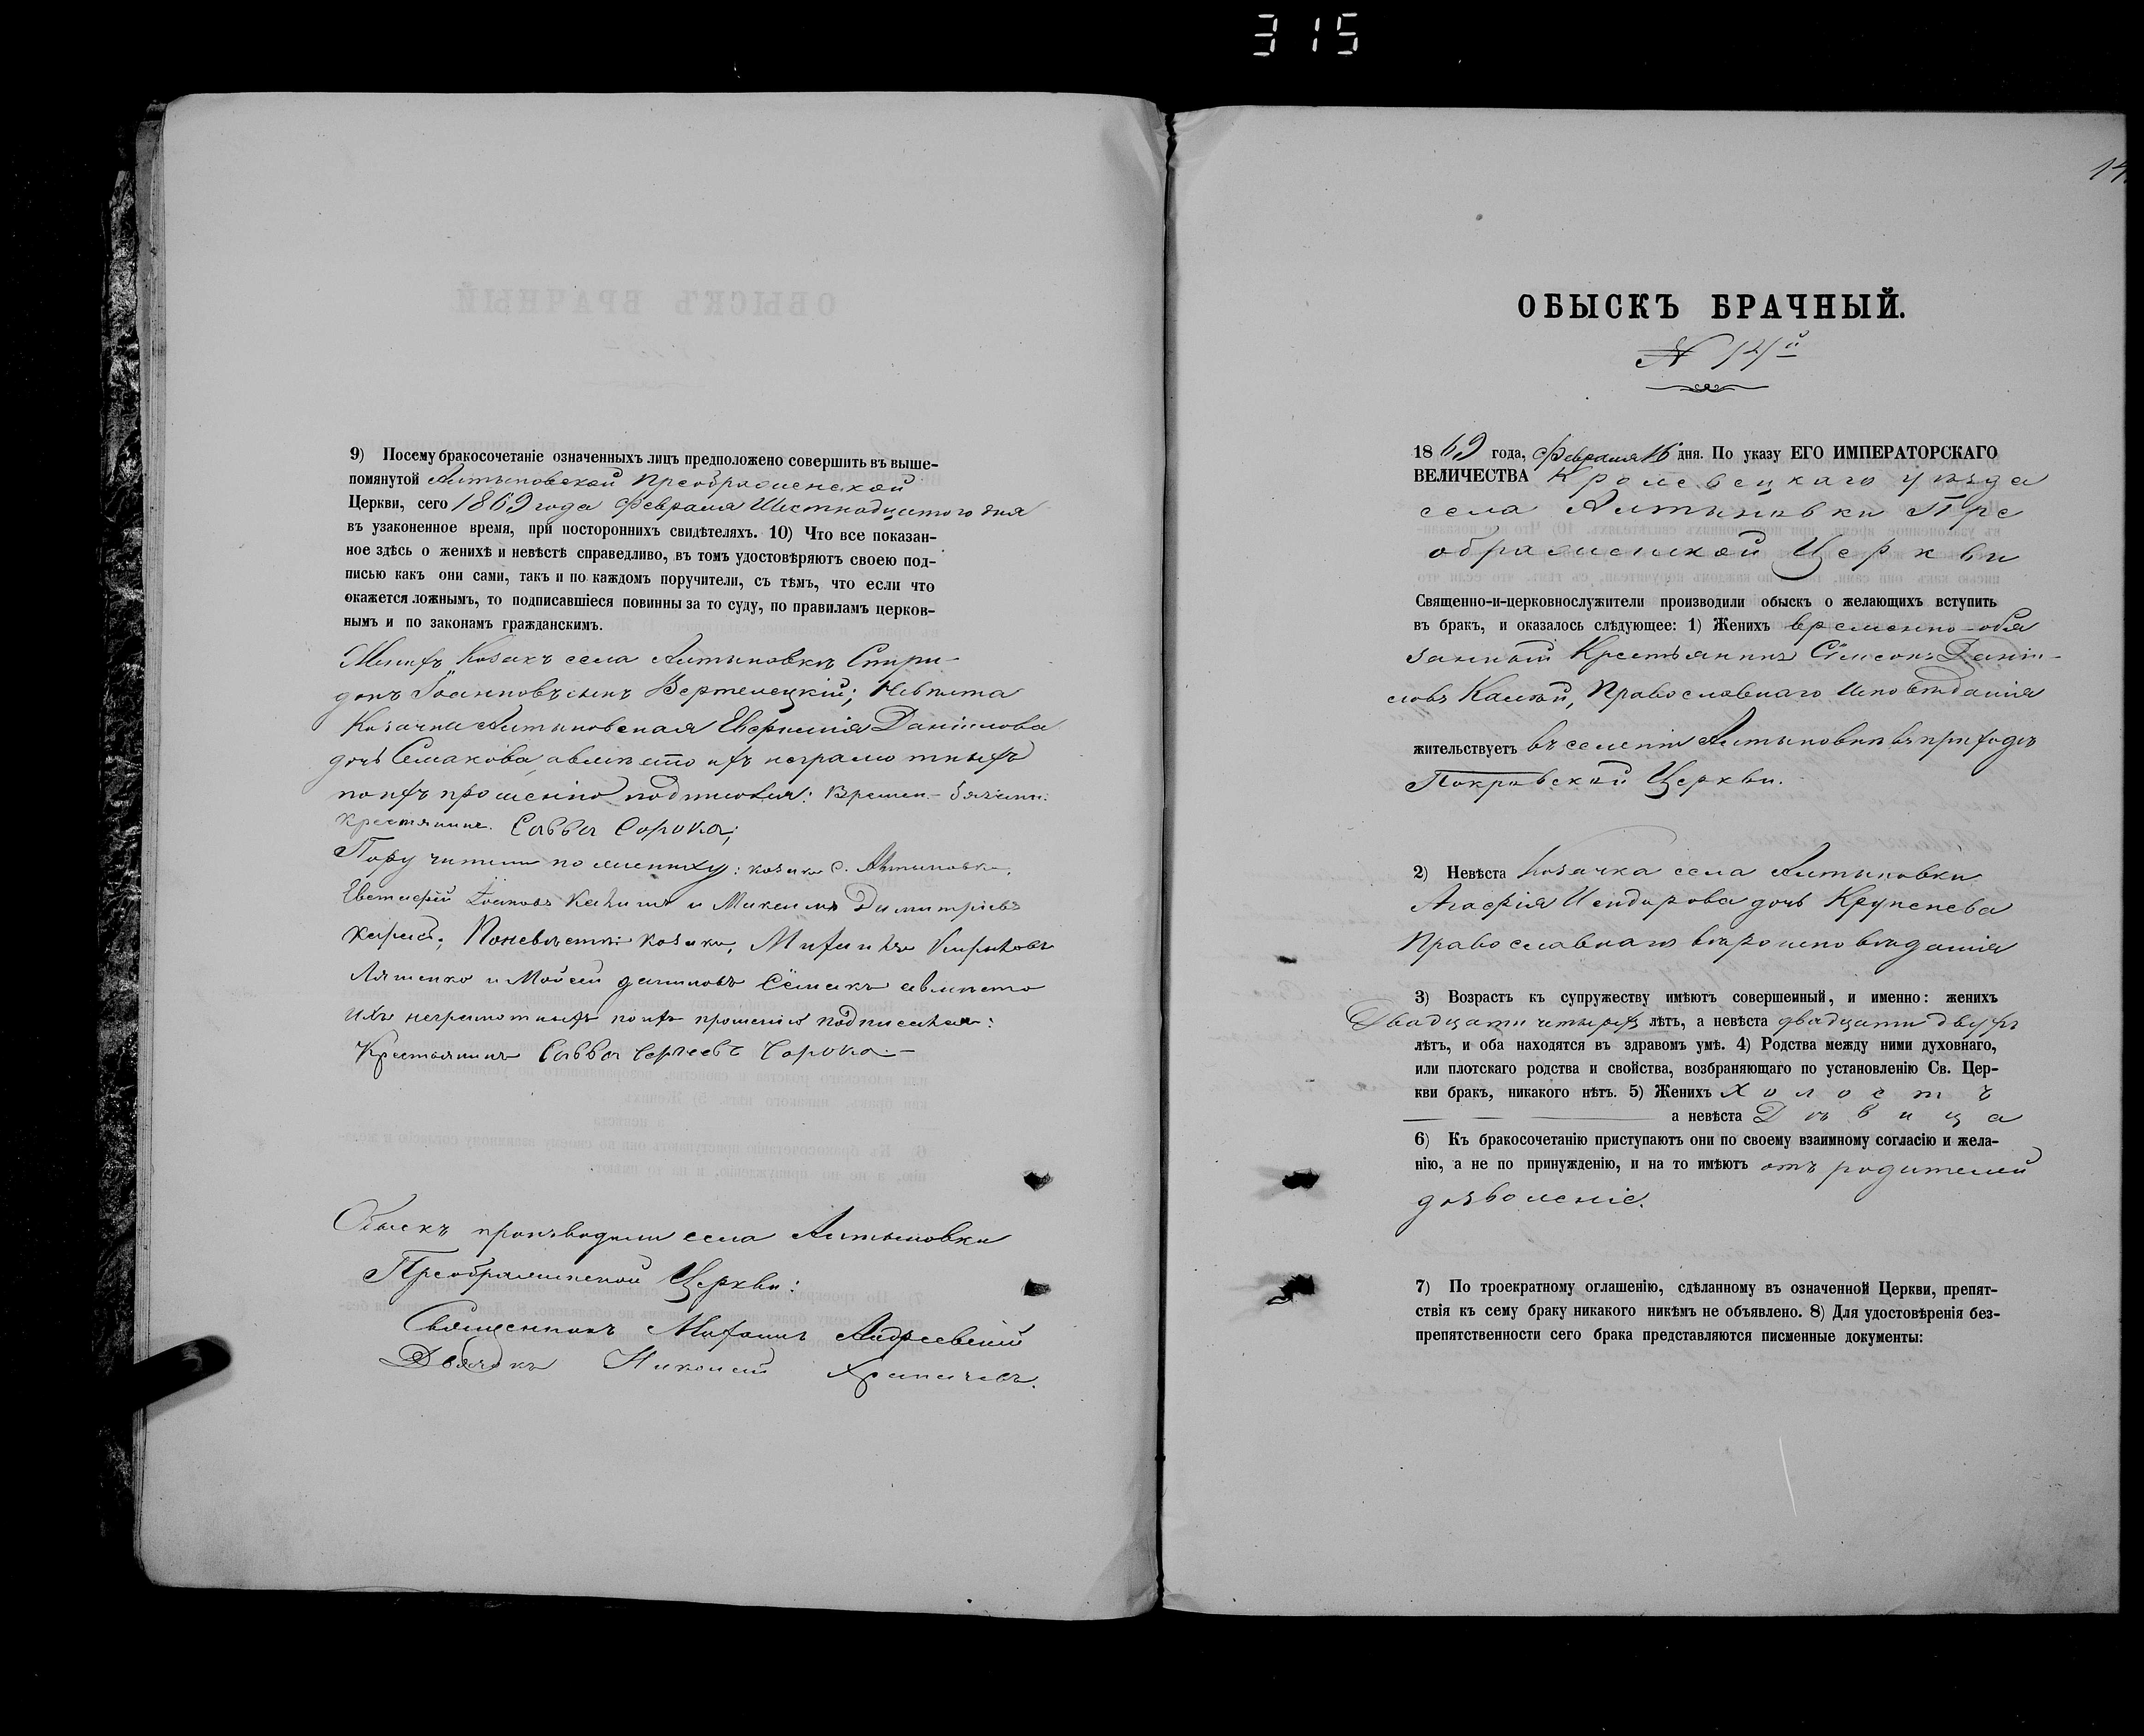 315
9) Посему бракосочетаніе означенныхъ лицъ предположено совершить въ выше-
помянутой Алтыновской Преображенской
Церкви, сего 1869 года Февраля Шестнадцатого дня
въ узаконенное время, при постороннихъ свидѣтеляхъ. 10) Что все показан-
ное здѣсь о женихѣ и невѣстѣ справедливо, въ томъ удостовѣряютъ своею под-
писью какъ они сами, такъ и по каждомъ поручители, съ тѣмъ, что если что
окажется ложнымъ, то подписавшіеся повинны за то суду, по правиламъ церков-
нымъ и по законамъ гражданскимъ.
Женихъ Козакъ села Алтыновки Спири-
донъ Іоанновъ сынъ Вертелецкій; Невѣста
Козачка Алтыновская Даніилова
дочь Семакова, а вмѣсто ихъ неграмотныхъ
по ихъ прошенію подписался: Времен.-
крестянинъ Савва Сорока;
Поручители по жениху: козаки с. Алтыновки,
Іоановъ и Максимъ Димитріевъ
По невѣстѣ: козаки, Михаилъ
Ляшенко и Мойсей Семакъ а вмѣсто
ихъ неграмотныхъ по ихъ прошенію подписался:
Крестьянинъ Савва Сергеевъ Сорока.-
Обыскъ производили села Алтыновки
Преображенской Церкви:
Священникъ Михаилъ Андреевскій
Дьячокъ Николай
14
ОБЫСКЪ БРАЧНЫЙ.
N 14й
1869 года, Февраля 16 дня. По указу ЕГО ИМПЕРАТОРСКАГО
ВЕЛИЧЕСТВА Кролевецкаго уѣзда
села Алтыновки Пре
ображенской Церкви
Священно-и-церковнослужители производили обыскъ о желающихъ вступить
въ бракъ, и оказалось слѣдующее: 1) Женихъ временно-обя
занный Крестьянинъ Сімеонъ Даніи-
ловъ Православнаго Исповѣданія
жительствуетъ въ селеніи Алтыновки въ приходѣ
Покровской Церкви.
2) Невѣста Козачка села Алтыновки
Агафія дочь
Православнаго вѣроисповѣданія
3) Возрастъ къ супружеству имѣютъ совершенный, и именно: женихъ
Двадцати четырехъ лѣтъ, а невѣста двадцати двухъ
лѣтъ, и оба находятся въ здравомъ умѣ. 4) Родства между ними духовнаго,
или плотскаго родства и свойства, возбраняющаго по установленію Св. Цер-
кви бракъ, никакого нѣтъ. 5) Женихъ Холостъ
а невѣста Дѣвица
6) Къ бракосочетанію приступаютъ они по своему взаимному согласію и жела-
нію, а не по принужденію, и на то имѣютъ отъ родителей
дозволеніе.
7) По троекратному оглашенію, сдѣланному въ означенной Церкви, препят-
ствія къ сему браку никакого никѣмъ не объявлено. 8) Для удостовѣренія без-
препятственности сего брака представляются писменные документы: